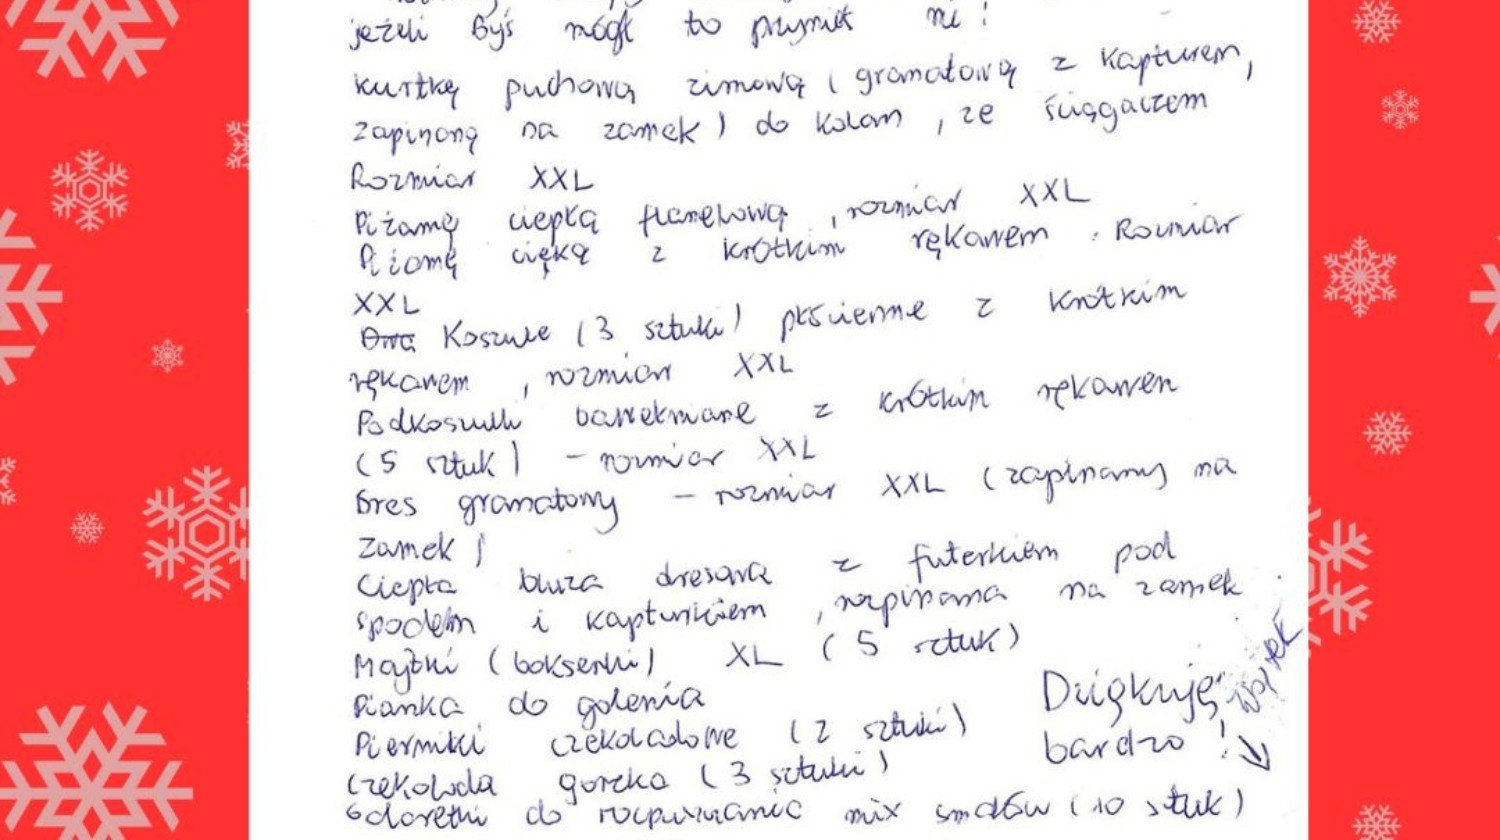 jeżeli Byś mógł to przynieś mi!
kurtkę puchową zimową (granatową z kapturem,
zapinaną na zamek) do kolan, ze ściągaczem
Rozmiar XXL
Piżamę ciepłą flanelową, rozmiar XXL
Piżamę cięką z krótkim rękawem. Rozmiar
XXL
Dwa Koszule (3 sztuki) płócienne z krótkim
rękawem, rozmiar XXL
Podkoszulki bawełniane z krótkim rękawem
(5 sztuk) - rozmiar XXL
Dres granatowy - rozmiar XXL (zapinany na
zamek)
Ciepła bluza dresowa z futerkiem pod
spodem i kapturkiem, rozpinana na zamek
Majtki (bokserki) XL (5 sztuk)
Pianka do golenia
Pierniki czekoladowe (2 sztuki)
Czekolada gorzka (3 sztuki)
Galaretki do rozpuszczania mix smaków (10 sztuk)
Dziękuję
bardzo!